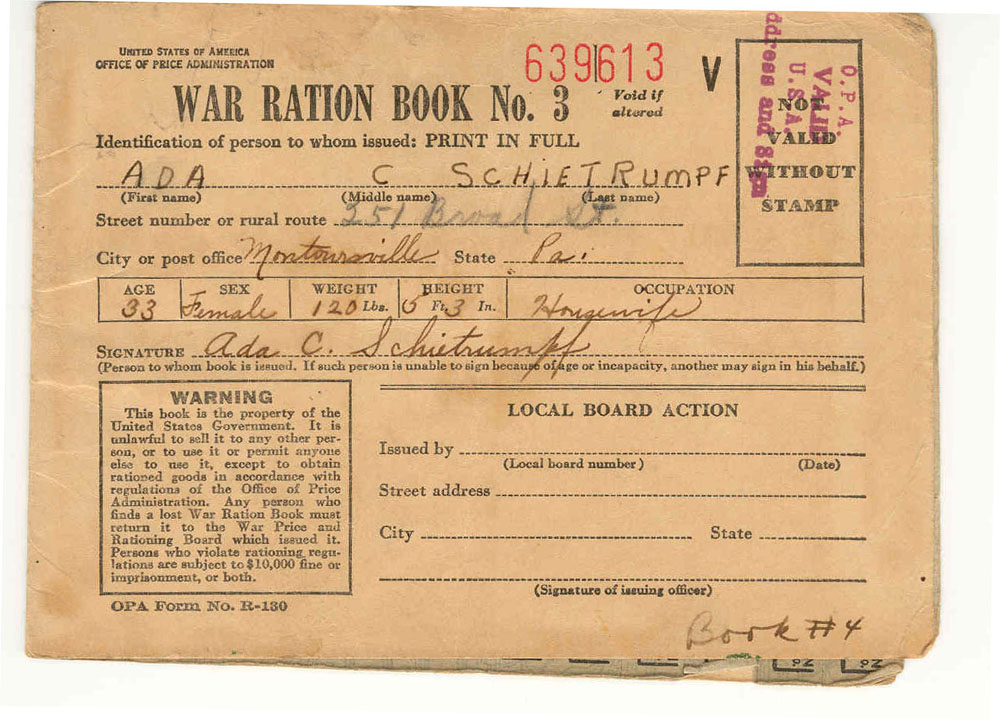 UNITED STATES OF AMERICA
OFFICE OF PRICE ADMINISTRATION
639613 V
WAR RATION BOOK No. 3
Void if
altered
Identification of person to whom issued: PRINT IN FULL
ADA C SCHIETRUMPF
(First name) (Middle name) (Last name)
Street number or rural route 351 Broad St.
City or post office Montoursville State Pa.
AGE SEX WEIGHT HEIGHT OCCUPATION
33 Female 120 Lbs. 5 Ft. 3 In. Housewife
SIGNATURE Ada C. Schietrumpf
(Person to whom book is issued. If such person is unable to sign because of age or incapacity, another may sign in his behalf.)
NOT
VALID
WITHOUT
STAMP
O.P.A.
VALID
U.S.A.
ddress and
WARNING
This book is the property of the
United States Government. It is
unlawful to sell it to any other per-
son, or to use it or permit anyone
else to use it, except to obtain
rationed goods in accordance with
regulations of the Office of Price
Administration. Any person who
finds a lost War Ration Book must
return it to the War Price and
Rationing Board which issued it.
Persons who violate rationing regu-
lations are subject to $10,000 fine or
imprisonment, or both.
OPA Form No. R-130
LOCAL BOARD ACTION
Issued by
(Local board number) (Date)
Street address
City State
(Signature of issuing officer)
Book #4